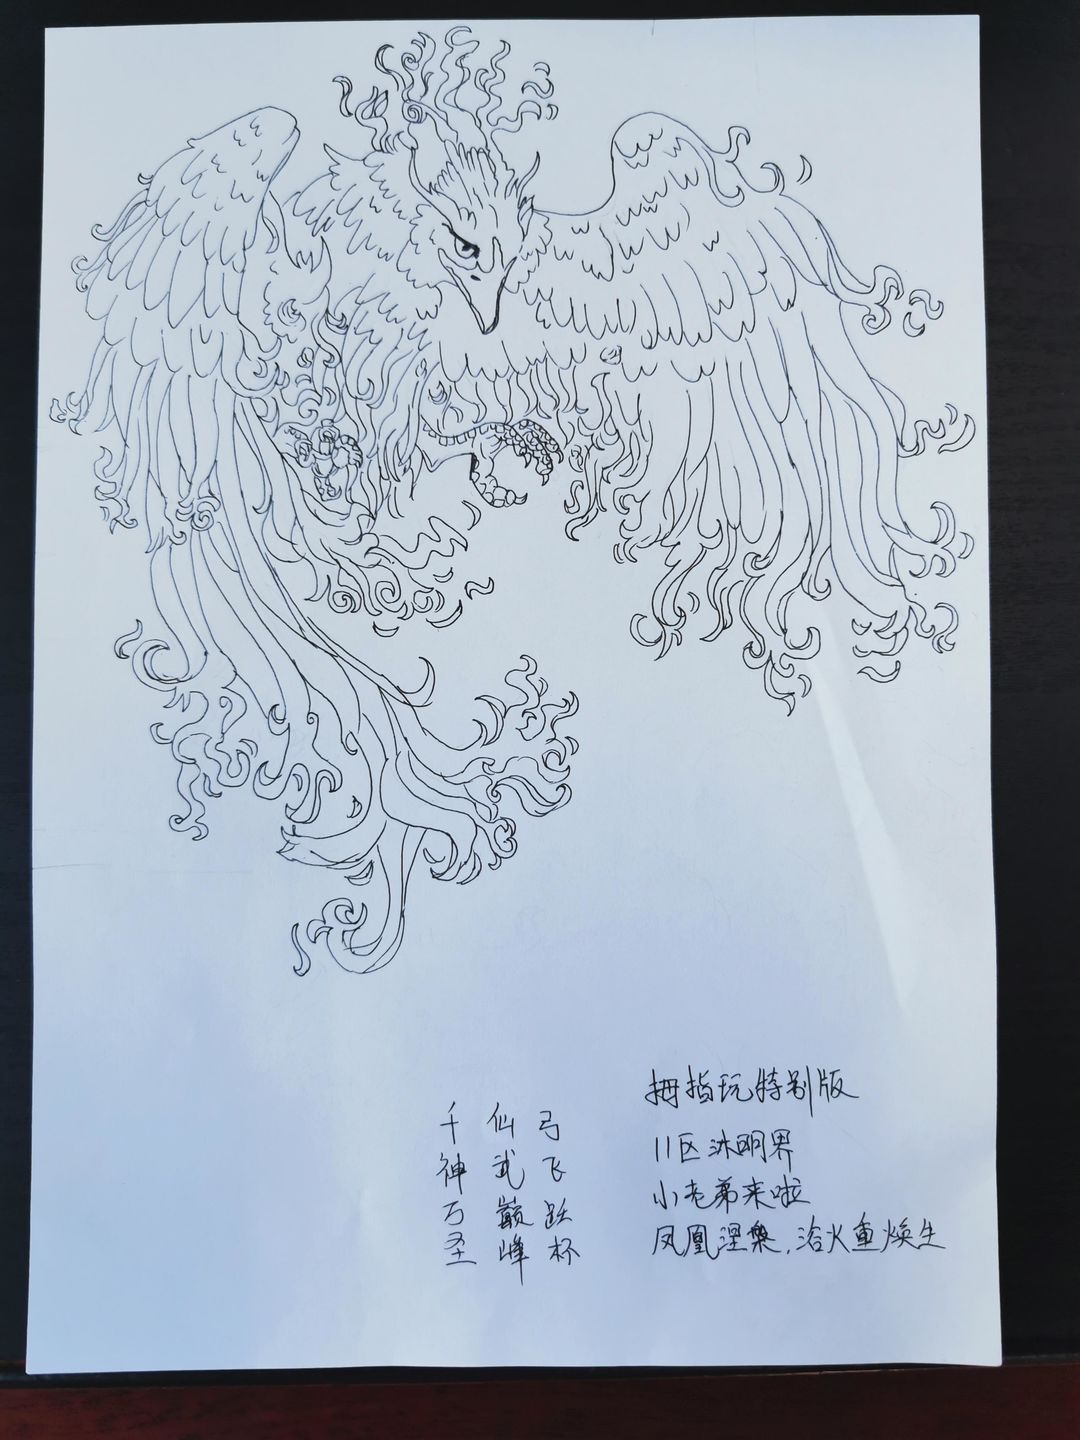 千神万圣
仙武巅峰
弓飞跃杯
拇指玩特别版
11区沐明界
小老弟来啦
凤凰涅槃，浴火重焕生